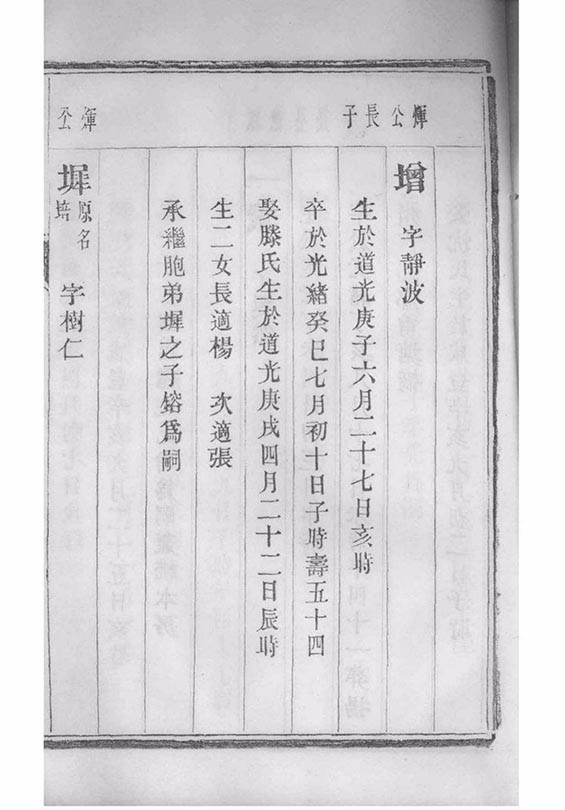 煇公長子
增 字靜波
生於道光庚子六月二十七日亥時
卒於光緒癸巳七月初十日子時壽五十四
娶滕氏生於道光庚戌四月二十二日辰時
生二女長適楊 次適張
承繼胞弟墀之子鎔爲嗣
煇公
墀 原名培 字樹仁